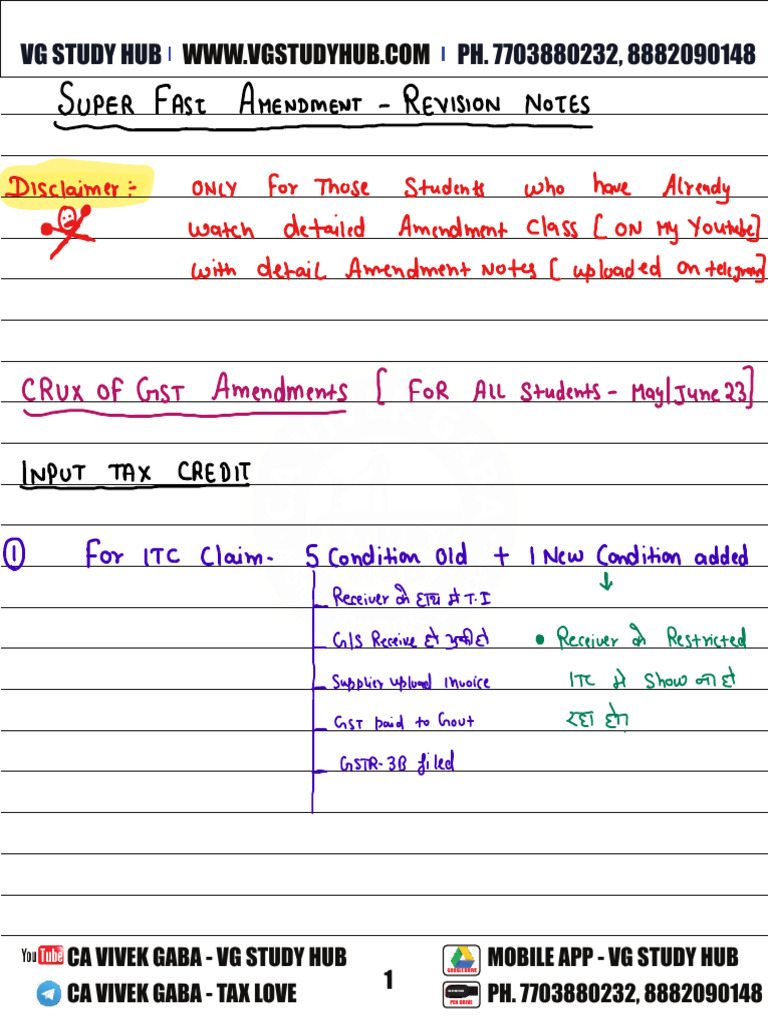 VG STUDY HUB | WWW.VGSTUDYHUB.COM | PH. 7703880232, 8882090148
SUPER FAST AMENDMENT - REVISION NOTES
Disclaimer:- ONLY for Those Students who have Already
watch detailed Amendment Class [ON My Youtube]
with detail Amendment Notes [uploaded on telegram]
CRUX OF GST Amendments [FOR All Students - May/June 23]
INPUT TAX CREDIT
① For ITC Claim - 5 Condition Old + 1 New Condition added
↓
Receiver के हाथ में T.I
G/S Receive हो चुकी हो
Supplier upload invoice
GST paid to Govt
GSTR-3B filed
• Receiver के Restricted
ITC में Show ना हो
रहा हो।
You Tube CA VIVEK GABA - VG STUDY HUB
CA VIVEK GABA - TAX LOVE
1
GOOGLE DRIVE MOBILE APP - VG STUDY HUB
PEN DRIVE PH. 7703880232, 8882090148